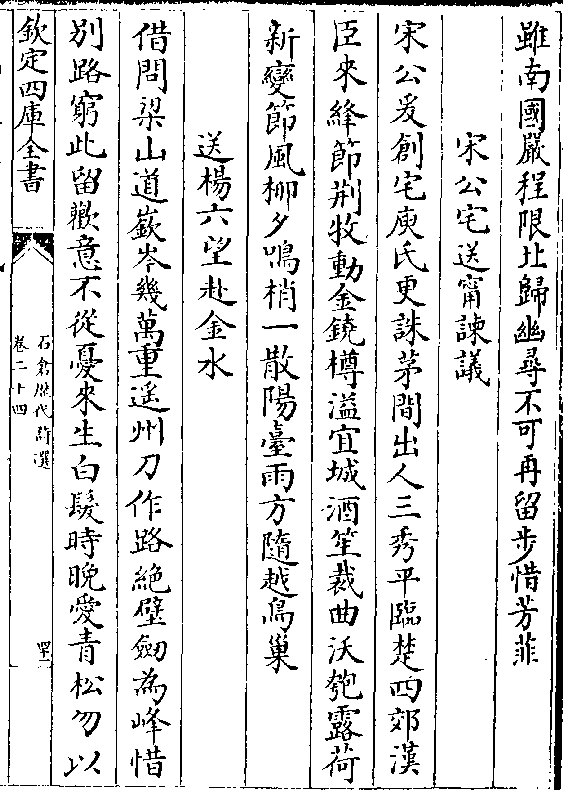 雖南國嚴程限北歸幽尋不可再留步惜芳菲
宋公宅送甯諫議
宋公爰創宅庾氏更誅茅間出人三秀平臨楚四郊漢
臣來絳節荆牧動金鐃樽溢宜城酒笙裁曲沃匏露荷
新變節風柳夕鳴梢一散陽臺雨方隨越鳥巢
送楊六望赴金水
借問梁山道嶔岑幾萬重遥州刀作路絶壁劒為峰惜
别路窮此留歡意不從憂來生白髮時晚愛青松勿以
欽定四庫全書
石倉歴代詩選
卷二十四